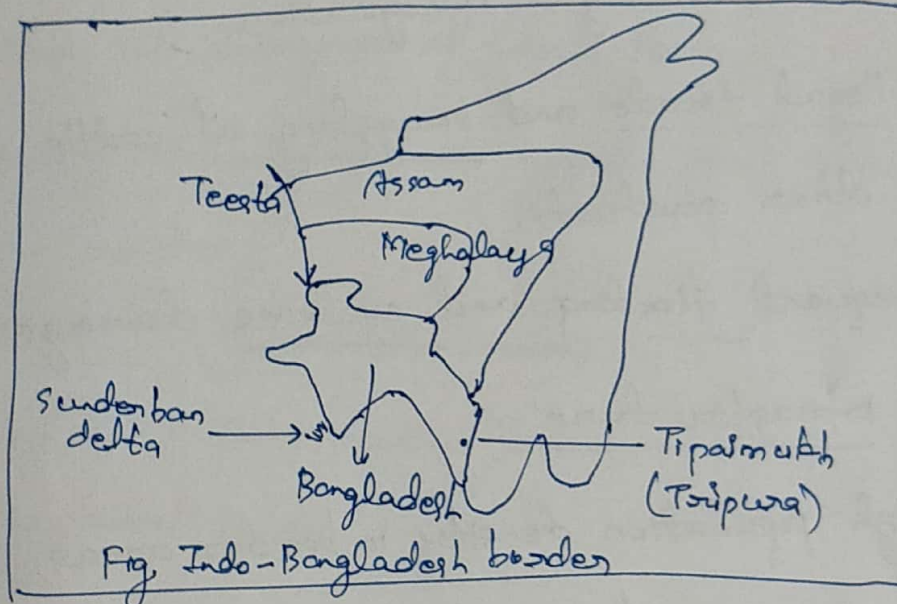 Teesta
Assam
Meghalaya
Sunderban
delta
Bangladesh
Tipaimukh
(Tripura)
Fig, Indo-Bangladesh border